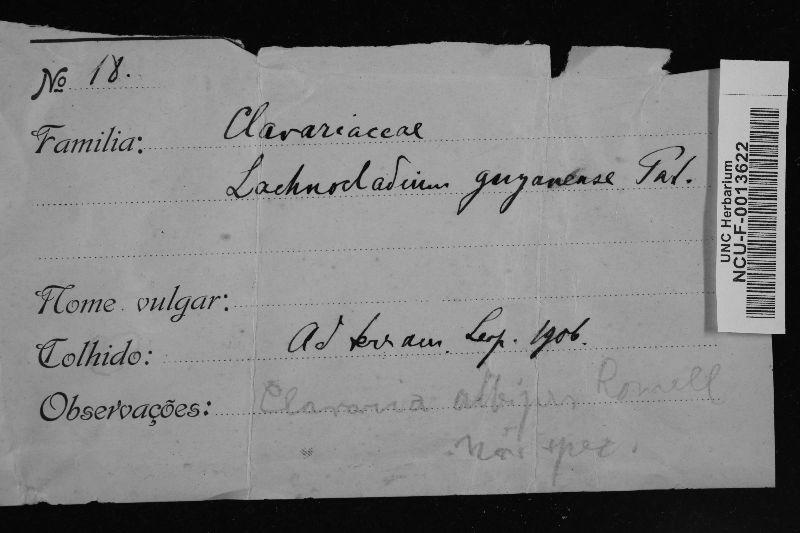 No 18.
Familia: Clavariaceae
Lachnocladium guyanense Pat.
Nome vulgar:
Colhido: Ad terram. Leop. 1906.
Observações: Clavaria albipes Romell
spez.
UNC Herbarium
NCU-F-0013622